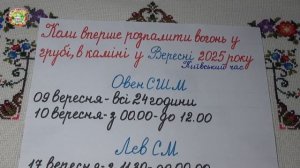 Коли вперше розпалити вогонь у
грубі, в каміні у Вересні 2025 року
Київський час
Овен СШМ
09 вересня - всі 24 години
10 вересня - з 00.00 до 12.00
Лев СМ
17 вересня - з